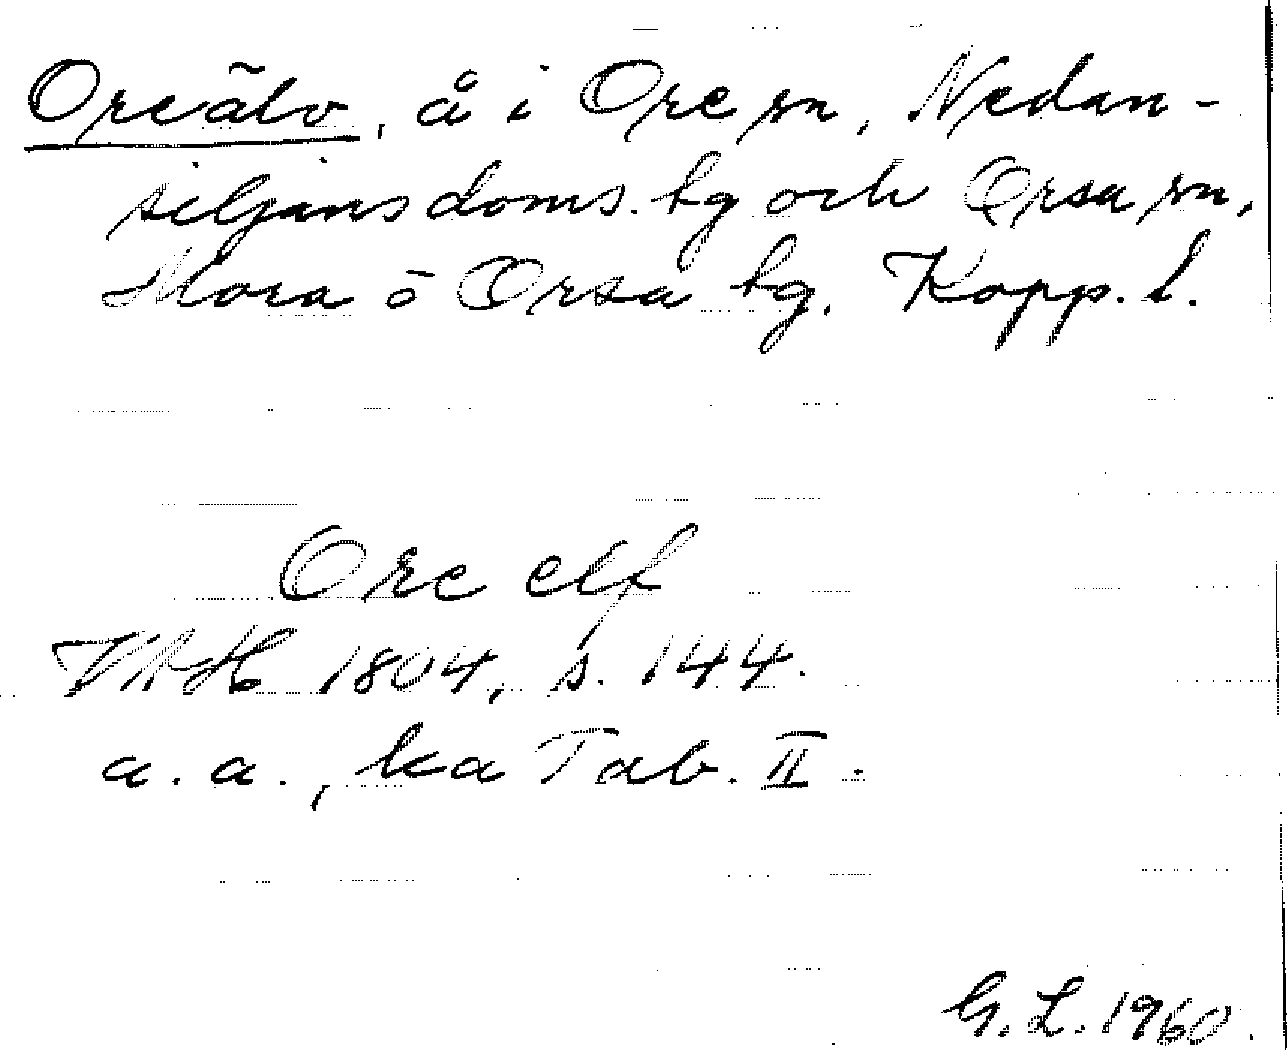 Oreälv, å i Ore sn, Nedan-
siljans doms. tg och Orsa sn,
Mora o Orsa tg. Kopp. l.
Ore elf
VAH 1804, s. 144.
a. a., ka Tab. II.
G. L. 1960.